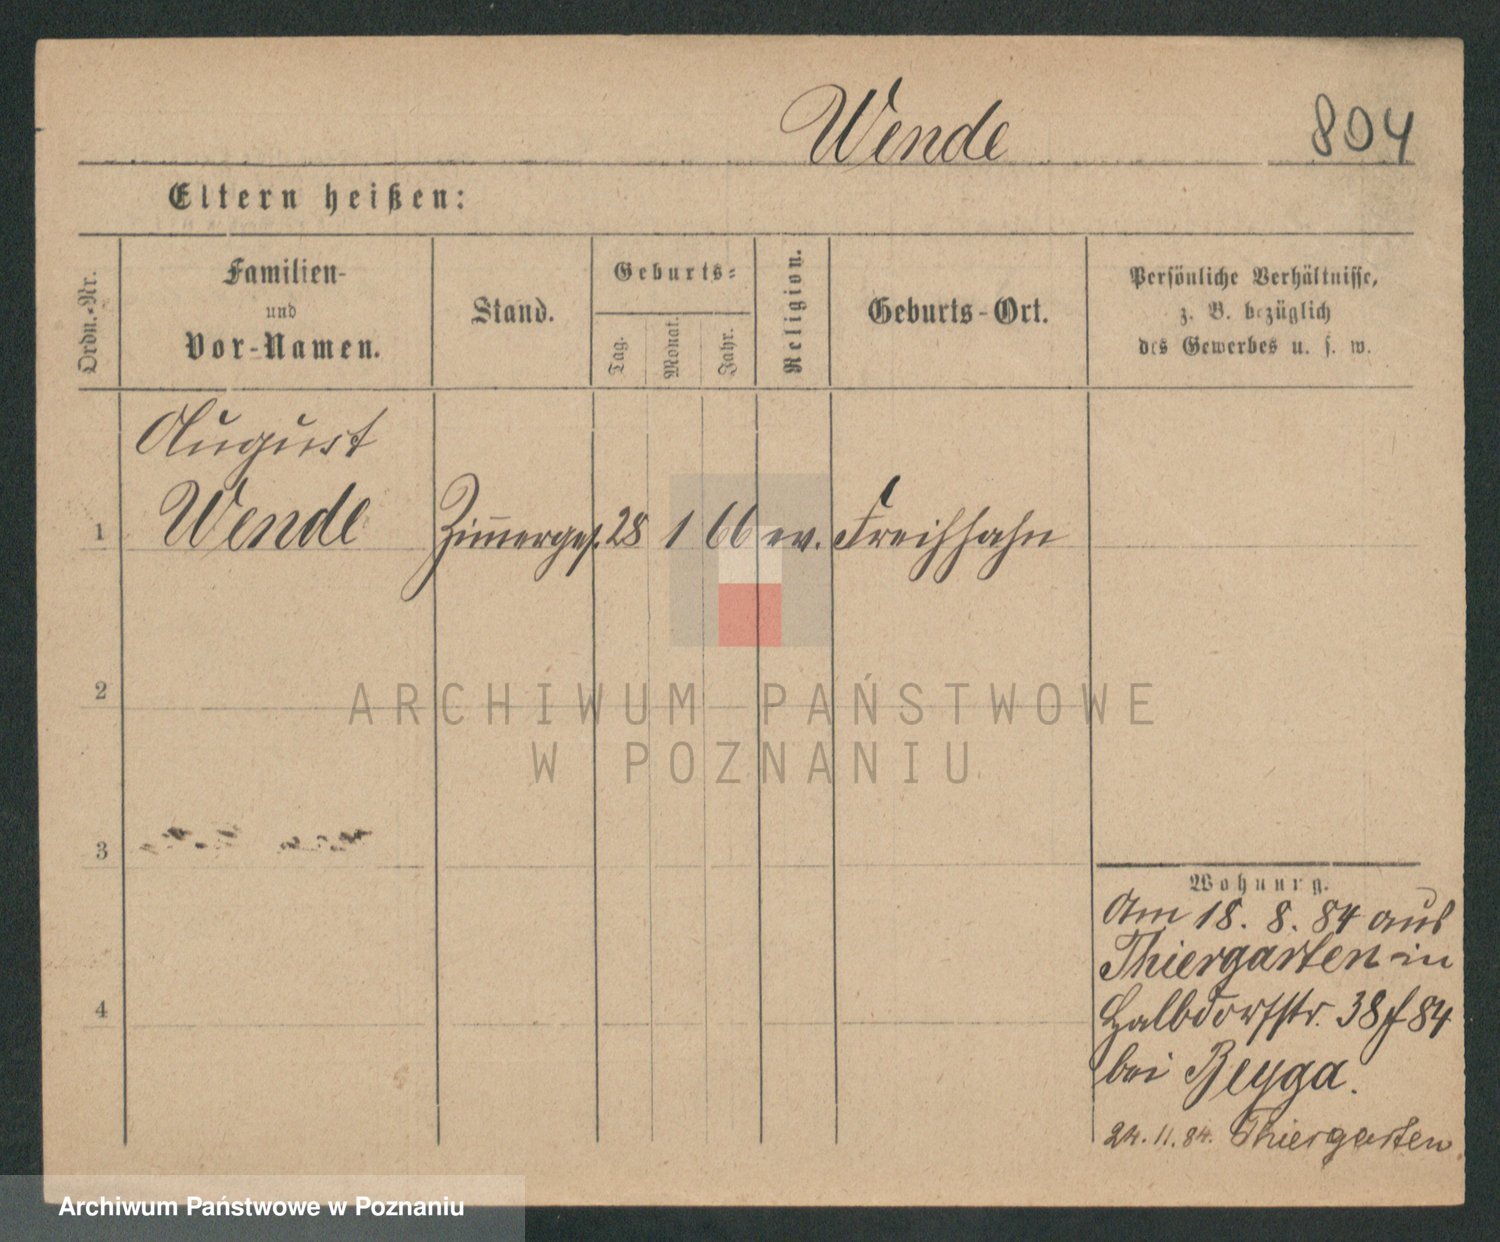 Wende 804
Eltern heißen:
Ordn.-Nr.
Familien-
und
Vor-Namen.
Stand.
Geburts-
Tag.
Monat.
Jahr.
Religion.
Geburts-Ort.
Persönliche Verhältnisse,
z. B. bezüglich
des Gewerbes u. s. w.
August
1 Wende Zimmerges. 28 1 66 ev. Freihhahn
2
ARCHIWUM PAŃSTWOWE
W POZNANIU
3
Wohnung.
Am 18. 8. 84 aus
Thiergarten in
4
Halbdorfstr. 38 f 84
bei Beyga.
24. 11. 84. Thiergarten
Archiwum Państwowe w Poznaniu